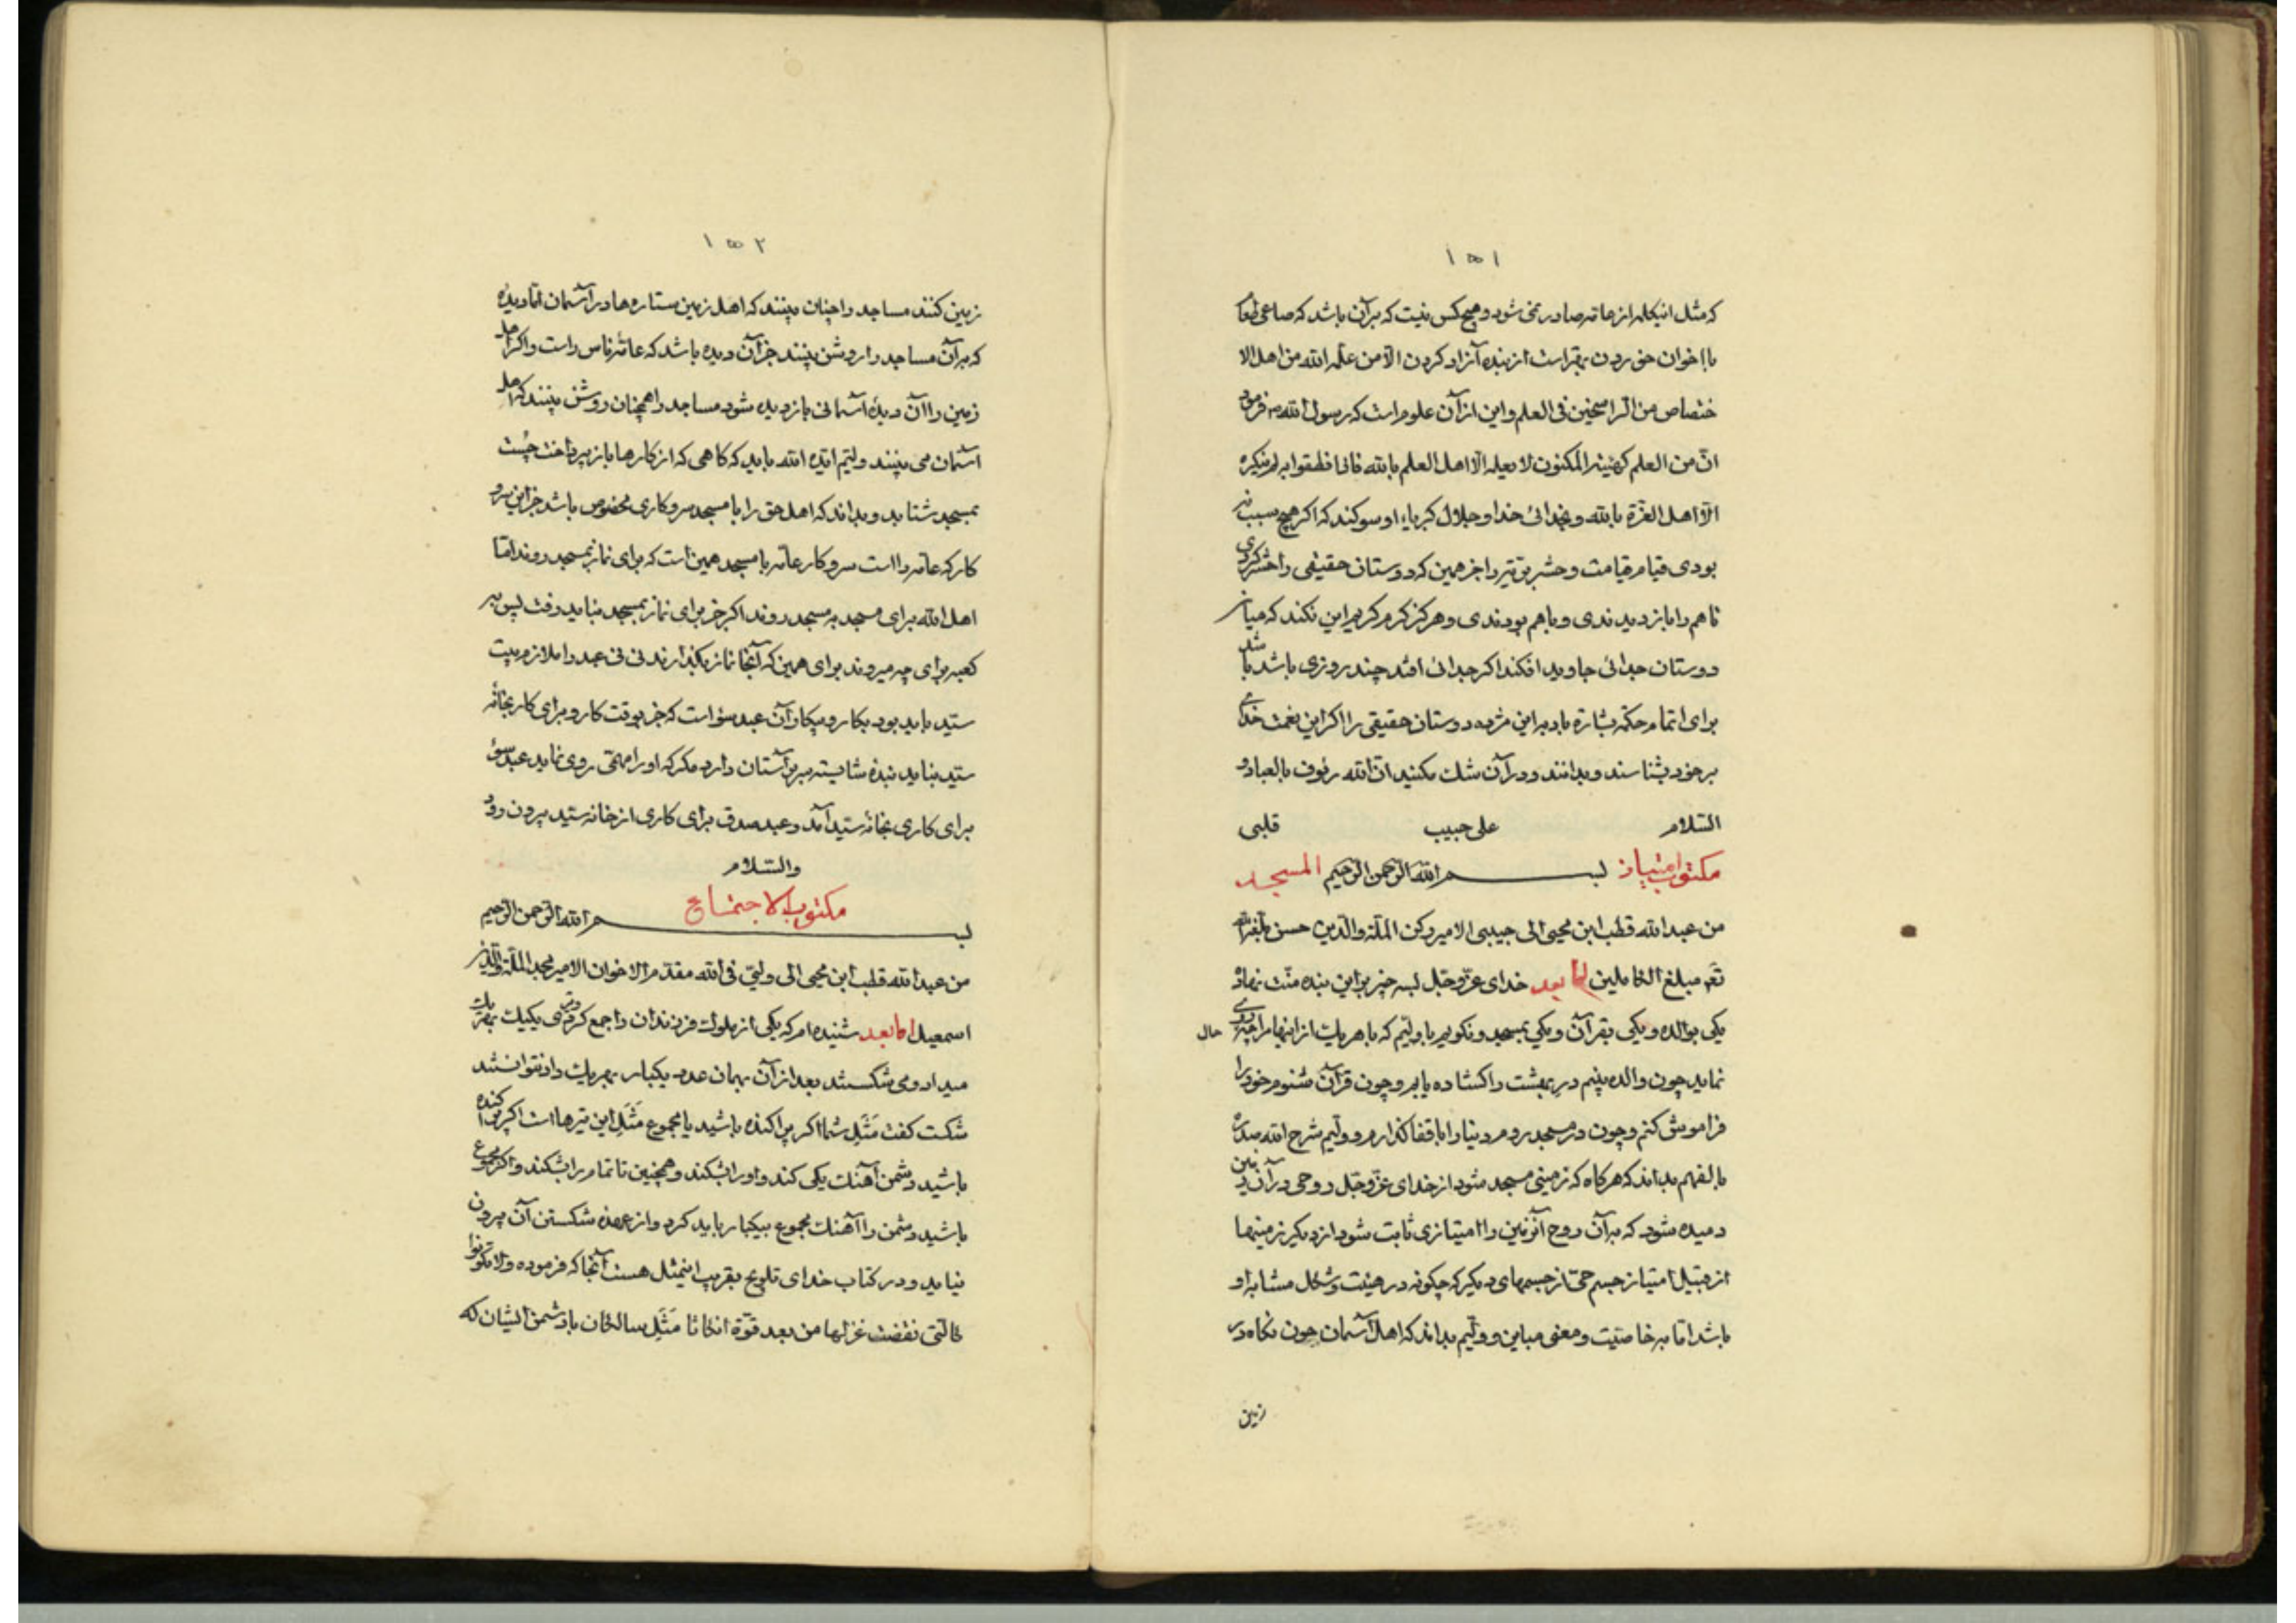 ١٥١
که مثل اینکلمه از عامّه صادر نمی شود و هیچ کس نیست که برآن باشد که صاعی طعام
با اخوان خوردن بهتر است از بنده آزاد کردن الّا من علّمه الله من اهل الا
ختصاص من الراسخین فی العلم و این از آن علوم است که رسول الله ص فرمود
انّ من العلم کهیئة المکنون لا یعلمه الّا اهل العلم بالله فاذا نطقوا به لم ینکره
الّا اهل الغرّة بالله و بخدائی خدا و جلال کبریاء او سوکند که اکر هیچ سبب نه
بودی قیام قیامت و حشر بریّه را جز همین که دوستان حقیقی را حشر کردی
تا هم را بازدیدندی و باهم بودندی و هرکز کرم کریم این نکند که میان
دوستان جدائی جاوید افکند اکر جدائی افتد چند روزی باشد با شد
برای اتمام حکمة بشارة باد به این مژده دوستان حقیقی را اکر این نعمت خدای
برخود بشناسند و بدانند و در آن شک نکنید انّ الله رئوف بالعباد و
السّلام علی حبیب قلبی
مکتوب امتیاز بسم الله الرّحمن الرّحیم المسجد
من عبد الله قطب ابن محیی الی حبیبی الامیر رکن الملّة والدّین حسن بلّغه الله
تعَم مبلغ الکاملین امّا بعد خدای عزّوجلّ بسه چیز براین بنده منّت نهاد
یکی بوالده و یکی بقرآن و یکی بمسجد و نکویم با ولیّم که با هریک از اینها مراچه روی حال
نماید چون والده بینم درِ بهشت را کشاده یابم و چون قرآن شنوم خود را
فراموش کنم و چون در مسجد روم دنیا را باقفا کذارم و ولیّم شرح الله صدره
بالفهم بداند که هرکاه که زمینی مسجد شود از خدای عزّوجلّ روحی در آن زمین
دمیده شود که بدآن روح آنزمین را امتیازی ثابت شود از دیکر زمینها
از قبیل امتیاز جسم حیّ از جسمهای دیکر که چکونه در هیئت و شکل مشابه او
باشد امّا به خاصیّت و معنی مباین و ولیّم بداند که اهل آسمان چون نکاه در
زمین
١٥٢
زمین کنند مساجد را چنان بینند که اهل زمین ستاره ها در آسمان امّا دیدهٔ
که بدآن مساجد را روشن بینند جز آن دیده باشد که عامّهٔ ناس راست و اکر اهل
زمین را آن دیدهٔ آسمانی باز دیده شود مساجد را همچنان روشن بینند که اهل
آسمان می بینند ولیّم ایّده الله باید که کاهی که از کارها باز پرداخت چُست
بمسجد شتابد و بداند که اهل حق را با مسجد سروکاری مخصوص باشد جز این سرو
کار که عامّه را است سروکار عامّه با مسجد همین است که برای نماز بمسجد روند امّا
اهل الله برای مسجد به مسجد روند اکر جز برای نماز بمسجد نباید رفت پس به
کعبه برای چه میروند برای همین که آنجا نماز بکذارند نی نی عبد را ملازم بیت
سیّد باید بود بکار و بیکار و آن عبد سؤاست که جز بوقت کار و برای کار بخانهٔ
سیّد نیاید بندهٔ شایسته سر برآستان دارد مکر که او را مهمّی روی نماید عبد سوء
برای کاری بخانهٔ سیّد آمد و عبد صدق برای کاری از خانه سیّد بیرون رود
والسّلام
مکتوب الاجتماع
بسم الله الرّحمن الرّحیم
من عبد الله قطب ابن محیی الی ولیّی فی الله مقدّم الاخوان الامیر مجد الملّة والدّین
اسمعیل امّا بعد شنیده ام که یکی از ملوک فرزندان را جمع کرد و تیری یکیک بهریک
میداد و می شکستند بعد از آن بهمان عدد یکبار بهریک داد نتوانستند
شکست کفت مَثَلِ شما اکر پراکنده باشید یا مجموع مَثَلِ این تیرها است اکر پراکنده
باشید دشمن آهنک یکی کند و او را بشکند و همچنین تا تمام را بشکند و اکر مجموع
باشید دشمن را آهنک مجموع بیکبار باید کرد و از عهدهٔ شکستن آن بیرون
نیاید و در کتاب خدای تلویح بقریب اینمثل هست آنجا که فرموده ولا تکونوا
کالّتی نقضت غزلها من بعد قوّة انکاثا مَثَلِ سالکان با دشمن ایشان که